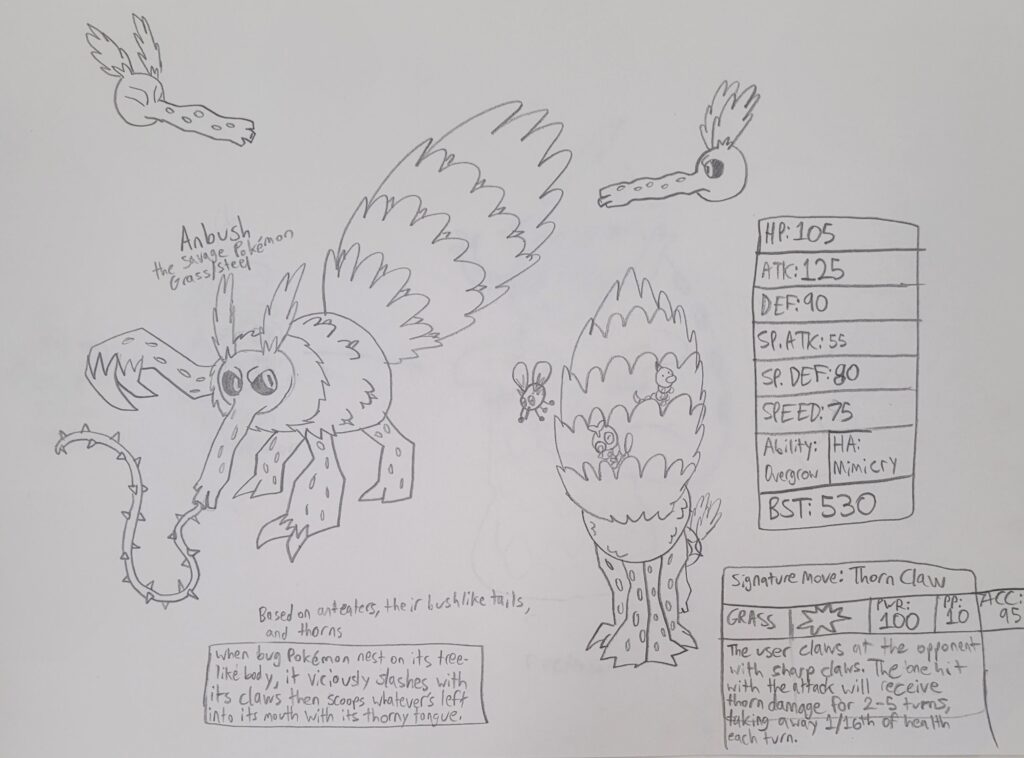 Anbush
the savage Pokémon
Grass/Steel
HP: 105
ATK: 125
DEF: 90
SP. ATK: 55
SP. DEF: 80
SPEED: 75
Ability: Overgrow
HA: Mimicry
BST: 530
Based on anteaters, their bushlike tails,
and thorns
When bug Pokémon nest on its tree-
like body, it viciously slashes with
its claws then scoops whatever's left
into its mouth with its thorny tongue.
Signature Move: Thorn Claw
GRASS
PWR: 100
PP: 10
ACC: 95
The user claws at the opponent
with sharp claws. The one hit
with the attack will receive
thorn damage for 2-5 turns,
taking away 1/16th of health
each turn.